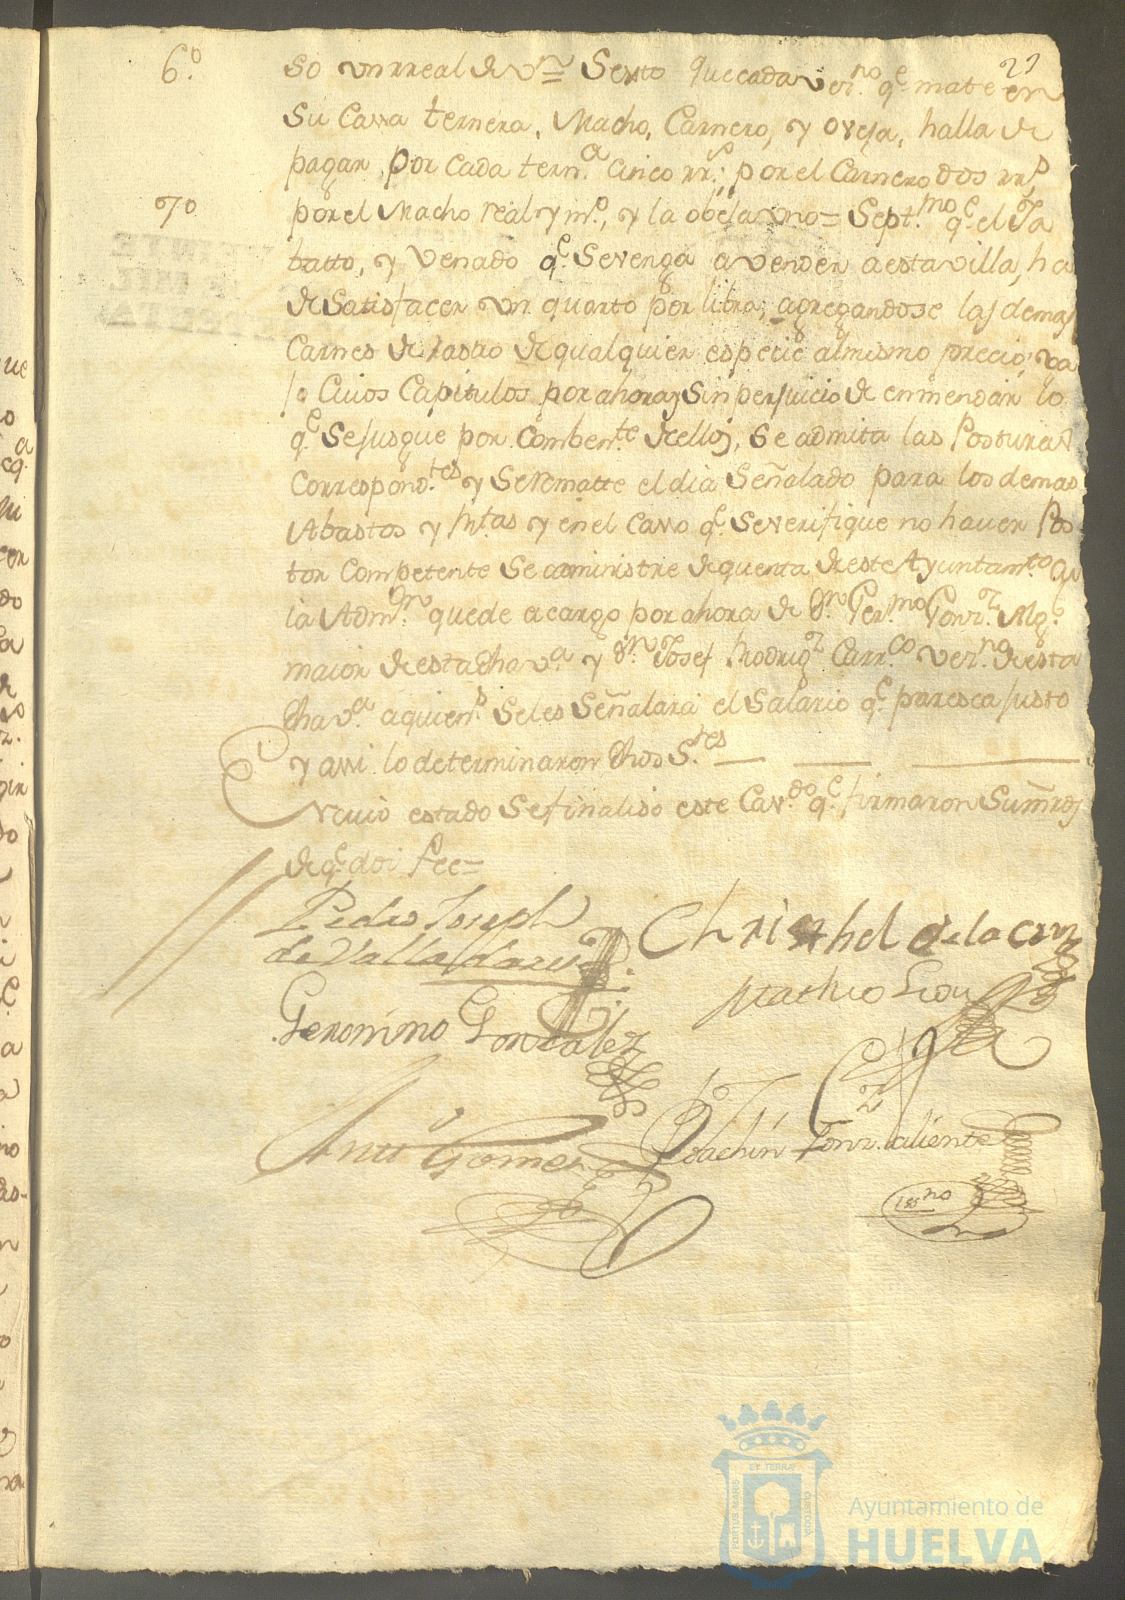 21
6.º so vn rreal de vn= Sexto que cada vezno. qe. mate en
su cassa ternera, Macho, Carnero, y oveja, halla de
pagar, por cada terna. cinco rrs.; por el Carnero dos rrs.
7º por el Macho real y mo., y la obeja vno= Septmo. qe. el Ja
batto, y Venado qe. se venga a vender a esta villa, ha
de satisfacer vn quarto por libra; agregandose las demas
Carnes de rastro de qualquier especie al mismo precio; va
jo cuios Capitulos por ahora, y sin perjuicio de enmendar lo
qe. se jusgue por combente. de ellos, se admita las Posturas
Correspondtes. y se rematte el dia señalado para los demas
Abastos y Rtas y en el casso qe. se verifique no haver Pos
tor Competente se aministre de quenta de este Ayuntamto.
la Admon. quede a cargo por ahora de Dn. Germo. Gonz. Alg.
maior de esta dha va. y Dn. Josef Rodrigz. Carrco. vezno. de esta
dha va. a quiens. se les señalará el salario qe. paresca justo
y assi lo determinaron dhos Stes.
En cuio estado se finaliso este Cavdo. qe. firmaron sus mrds
de qe. doi fee=
Pedro Joseph
de Valladares
Christhel de la Cruz
Mathio
Geronimo Gonzalez
Antto Gomez
Joachin Gonz. Valiente
essno
ET TERRAE
PORTUS MARIS
CUSTODIA
Ayuntamiento de
HUELVA